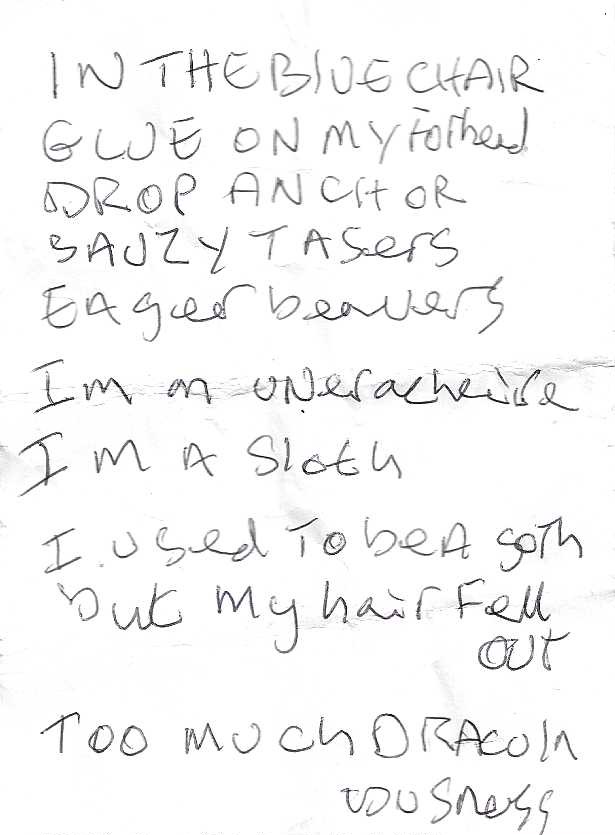 IN THE BLUE CHAIR
GLUE ON MY Forhead
DROP ANCHOR
BAUZY TASers
EAgeer beavers
Im an UNeracheive
Im A Sloth
I used To be A goth
but My hair Fell
OUT
Too Much DRAcoIn